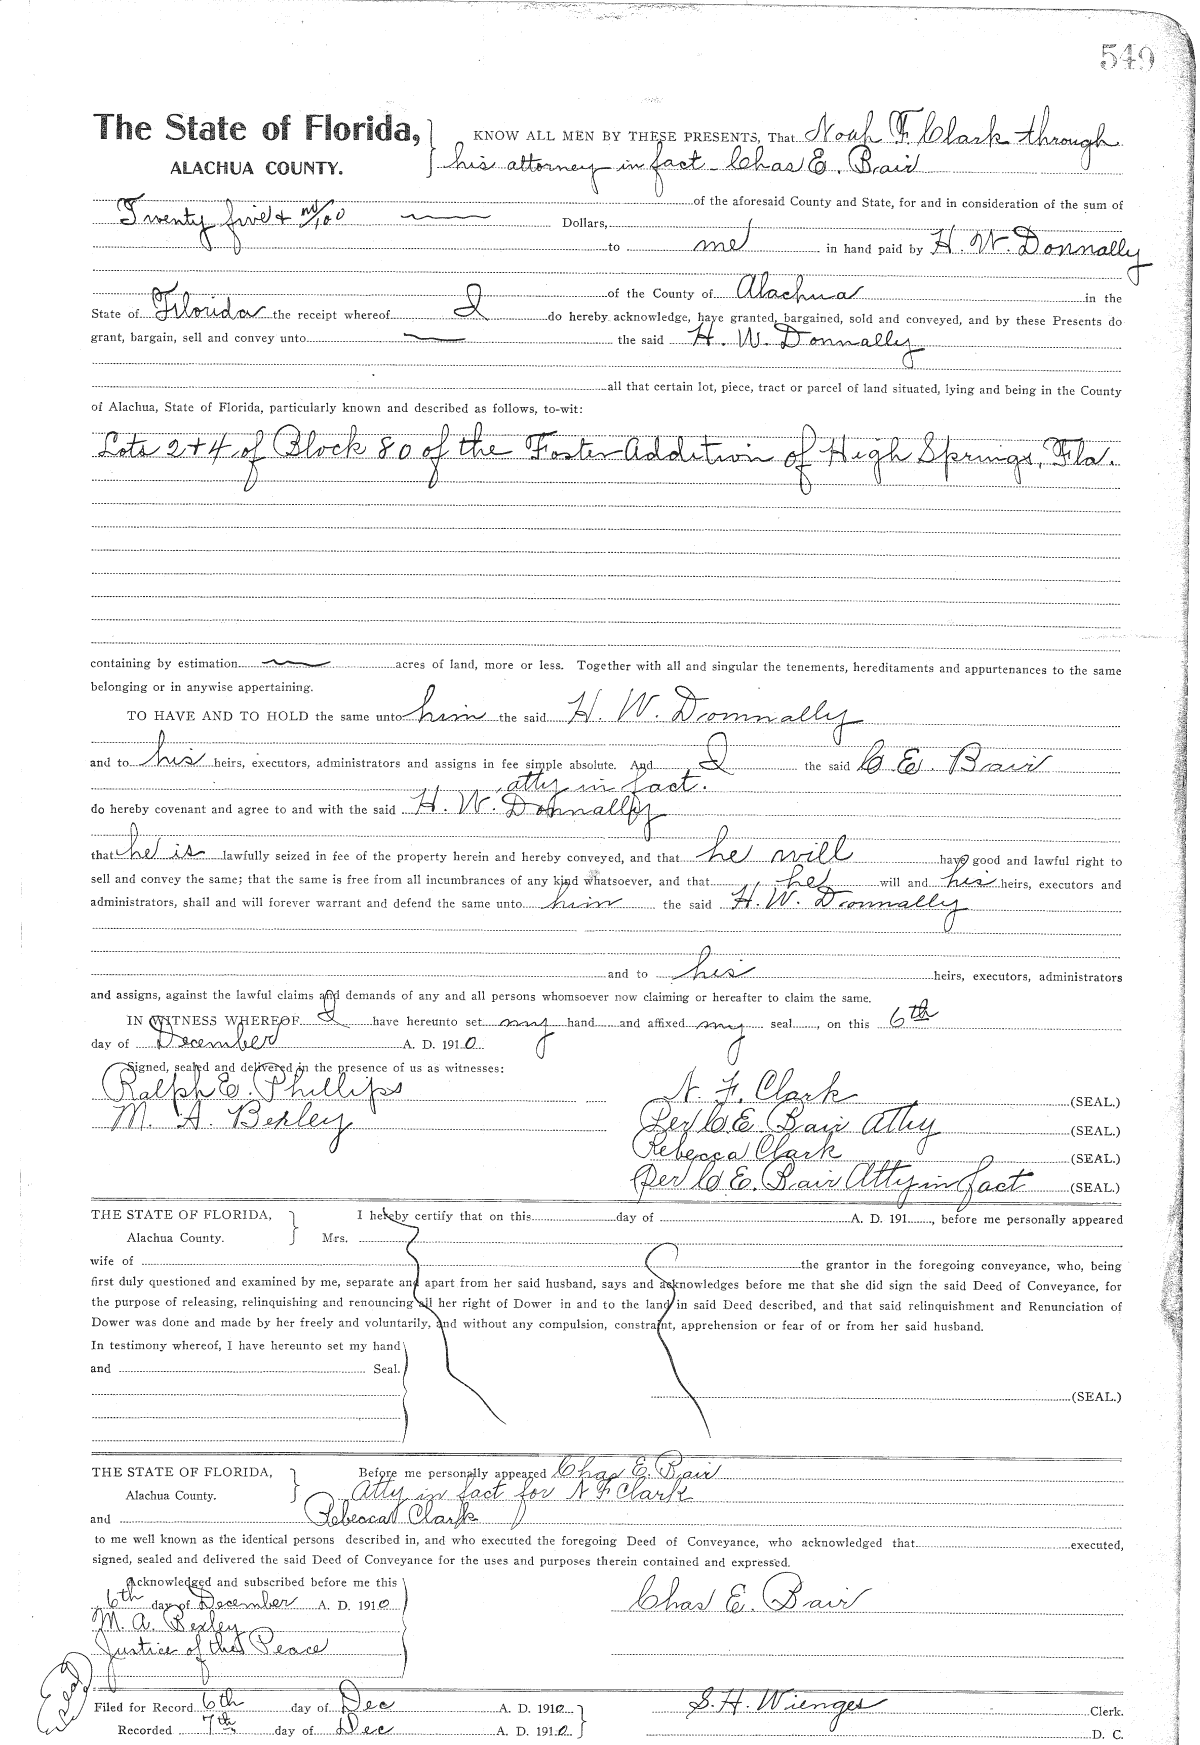 549
The State of Florida,
ALACHUA COUNTY.
KNOW ALL MEN BY THESE PRESENTS, That Noah F. Clark through
his attorney in fact - Chas E. Bair
of the aforesaid County and State, for and in consideration of the sum of
Twenty five & no/100 Dollars,
to me in hand paid by H. W. Donnally
of the County of Alachua in the
State of Florida the receipt whereof I do hereby acknowledge, have granted, bargained, sold and conveyed, and by these Presents do
grant, bargain, sell and convey unto the said H. W. Donnally
all that certain lot, piece, tract or parcel of land situated, lying and being in the County
of Alachua, State of Florida, particularly known and described as follows, to-wit:
Lots 2 + 4 of Block 80 of the Foster Addition of High Springs, Fla.
containing by estimation acres of land, more or less. Together with all and singular the tenements, hereditaments and appurtenances to the same
belonging or in anywise appertaining.
TO HAVE AND TO HOLD the same unto him the said H. W. Donnally
and to his heirs, executors, administrators and assigns in fee simple absolute. And I the said C E. Bair
atty in fact.
do hereby covenant and agree to and with the said H. W. Donnally
that he is lawfully seized in fee of the property herein and hereby conveyed, and that he will have good and lawful right to
sell and convey the same; that the same is free from all incumbrances of any kind whatsoever, and that he will and his heirs, executors and
administrators, shall and will forever warrant and defend the same unto him the said H. W. Donnally
and to his heirs, executors, administrators
and assigns, against the lawful claims and demands of any and all persons whomsoever now claiming or hereafter to claim the same.
IN WITNESS WHEREOF I have hereunto set my hand and affixed my seal, on this 6th
day of December A. D. 1910
Signed, sealed and delivered in the presence of us as witnesses:
Ralph E. Phillips
M. A. Bexley
N. F. Clark (SEAL.)
Per C E. Bair Atty (SEAL.)
Rebecca Clark (SEAL.)
Per C E. Bair Atty in fact (SEAL.)
THE STATE OF FLORIDA,
Alachua County.
I hereby certify that on this day of A. D. 191 , before me personally appeared
Mrs.
wife of the grantor in the foregoing conveyance, who, being
first duly questioned and examined by me, separate and apart from her said husband, says and acknowledges before me that she did sign the said Deed of Conveyance, for
the purpose of releasing, relinquishing and renouncing all her right of Dower in and to the land in said Deed described, and that said relinquishment and Renunciation of
Dower was done and made by her freely and voluntarily, and without any compulsion, constraint, apprehension or fear of or from her said husband.
In testimony whereof, I have hereunto set my hand
and Seal.
(SEAL.)
THE STATE OF FLORIDA,
Alachua County.
Before me personally appeared Chas E. Bair
Atty in fact for N F Clark
and Rebecca Clark
to me well known as the identical persons described in, and who executed the foregoing Deed of Conveyance, who acknowledged that executed,
signed, sealed and delivered the said Deed of Conveyance for the uses and purposes therein contained and expressed.
Acknowledged and subscribed before me this
6th day of December A. D. 1910
M. A. Bexley
Justice of the Peace
Chas E. Bair
Filed for Record 6th day of Dec A. D. 1910
Recorded 7th day of Dec A. D. 1910
S. H. Wienges Clerk.
D. C.